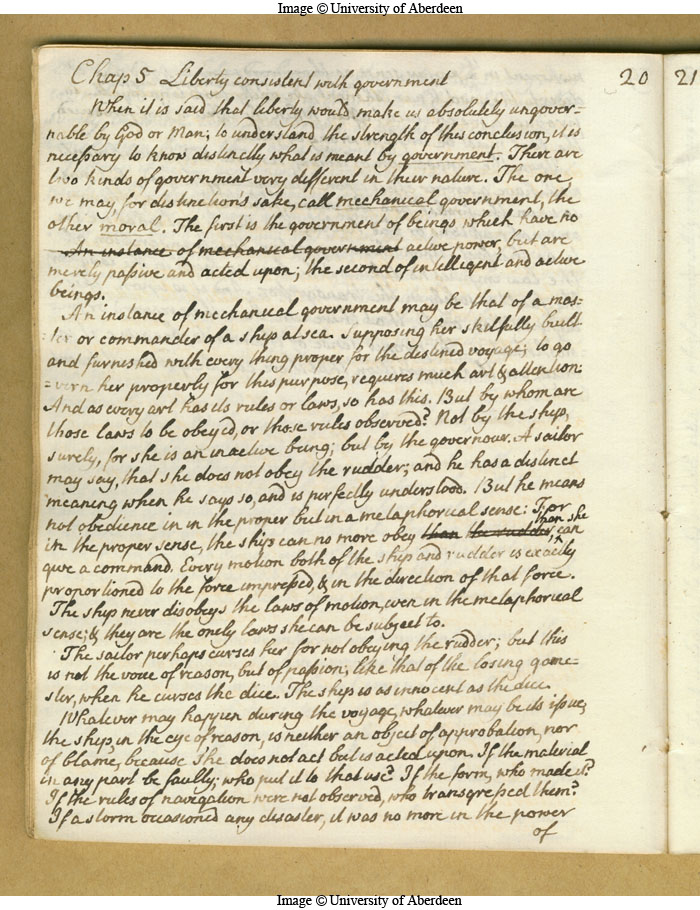 Image © University of Aberdeen
20
21
Chap 5 Liberty consistent with government
When it is said that liberty would make us absolutely ungover=
nable by God or Man; to understand the strength of this conclusion, it is
necessary to know distinctly what is meant by government. There are
two kinds of government very different in their nature. The one,
we may, for distinction's sake, call mechanical government, the
other moral. The first is the government of beings which have no
An instance of mechanical government active power, but are
merely passive and acted upon; the second of intelligent and active
beings.
An instance of mechanical government may be that of a mas=
=ter or commander of a ship at sea. Supposing her skilfully built
and furnished with every thing proper for the destined voyage; to go
=vern her properly for this purpose, requires much art & attention:
And as every art has its rules or laws, so has this. But by whom are
those laws to be obeyed, or those rules observed? Not by the ship,
surely, for she is an inactive being; but by the governour. A sailor
may say, that she does not obey the rudder; and he has a distinct
meaning when he says so, and is perfectly understood. But he means
not obedience in in the proper but in a metaphorical sense: For
in the proper sense, the ship can no more obey than the rudder, than she can
give a command. Every motion both of the ship and rudder is exactly
proportioned to the force impressed, & in the direction of that force.
The ship never disobeys the laws of motion, even in the metaphorical
sense; & they are the onely laws she can be subject to.
The sailor perhaps curses her for not obeying the rudder; but this
is not the voice of reason, but of passion, like that of the losing game=
ster, when he curses the dice. The ship is as innocent as the dice.
Whatever may happen during the voyage, whatever may be its issue,
the ship, in the eye of reason, is neither an object of approbation, nor
of blame, because she does not act but is acted upon. If the material
in any part be faulty; who put it to that use? If the form, who made it?
If the rules of navigation were not observed, who transgressed them?
If a storm occasioned any disaster, it was no more in the power
of
Image © University of Aberdeen